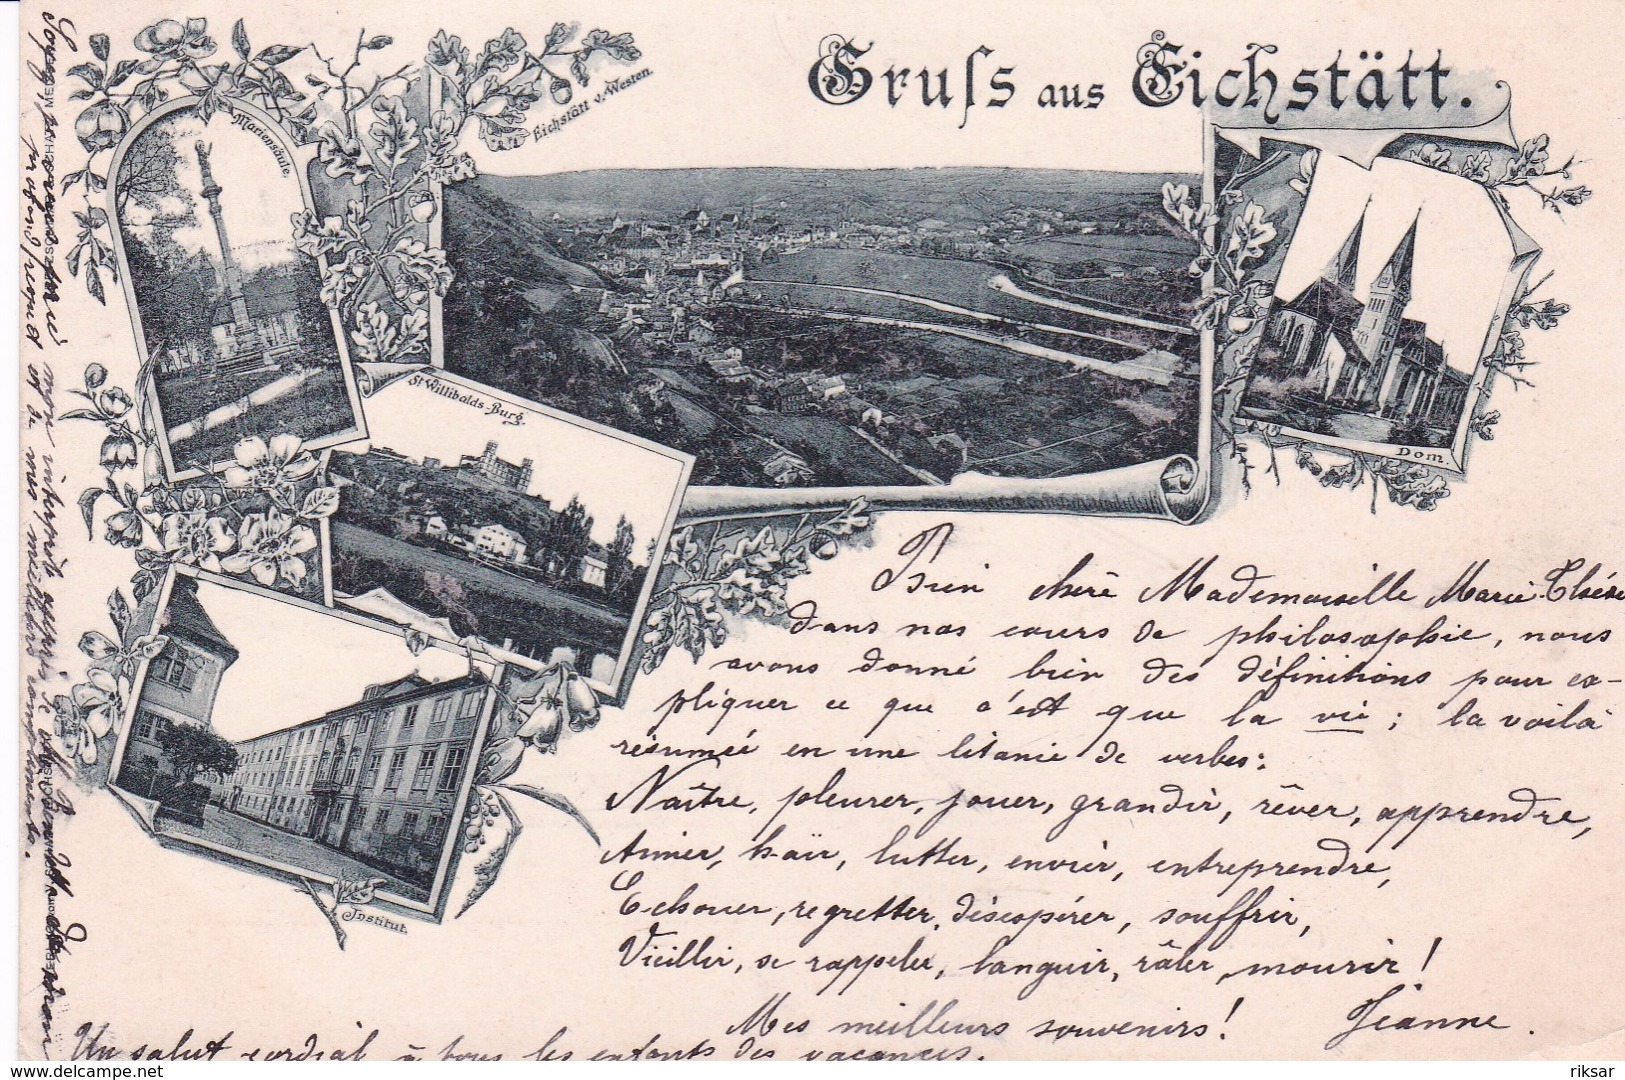 Gruss aus Eichstätt.
Eichstätt v. Westen.
Mariensäule.
St Willibalds-Burg.
Dom.
Institut.
Bien chère Mademoiselle Marie-Thérèse
dans nos cours de philosophie, nous
avons donné bien des définitions pour ex-
pliquer ce que c'est que la vie ; la voilà
résumée en une litanie de verbes :
Naître, pleurer, jouer, grandir, rêver, apprendre,
Aimer, haïr, lutter, envier, entreprendre,
Echouer, regretter, désespérer, souffrir,
Vieillir, se rappeler, languir, râler, mourir !
Mes meilleurs souvenirs ! Jeanne.
Un salut cordial à tous les enfants des vacances.
Soyez, mon interprète auprès de
profond respect et de mes meilleurs compliments.
riksar
delcampe.net